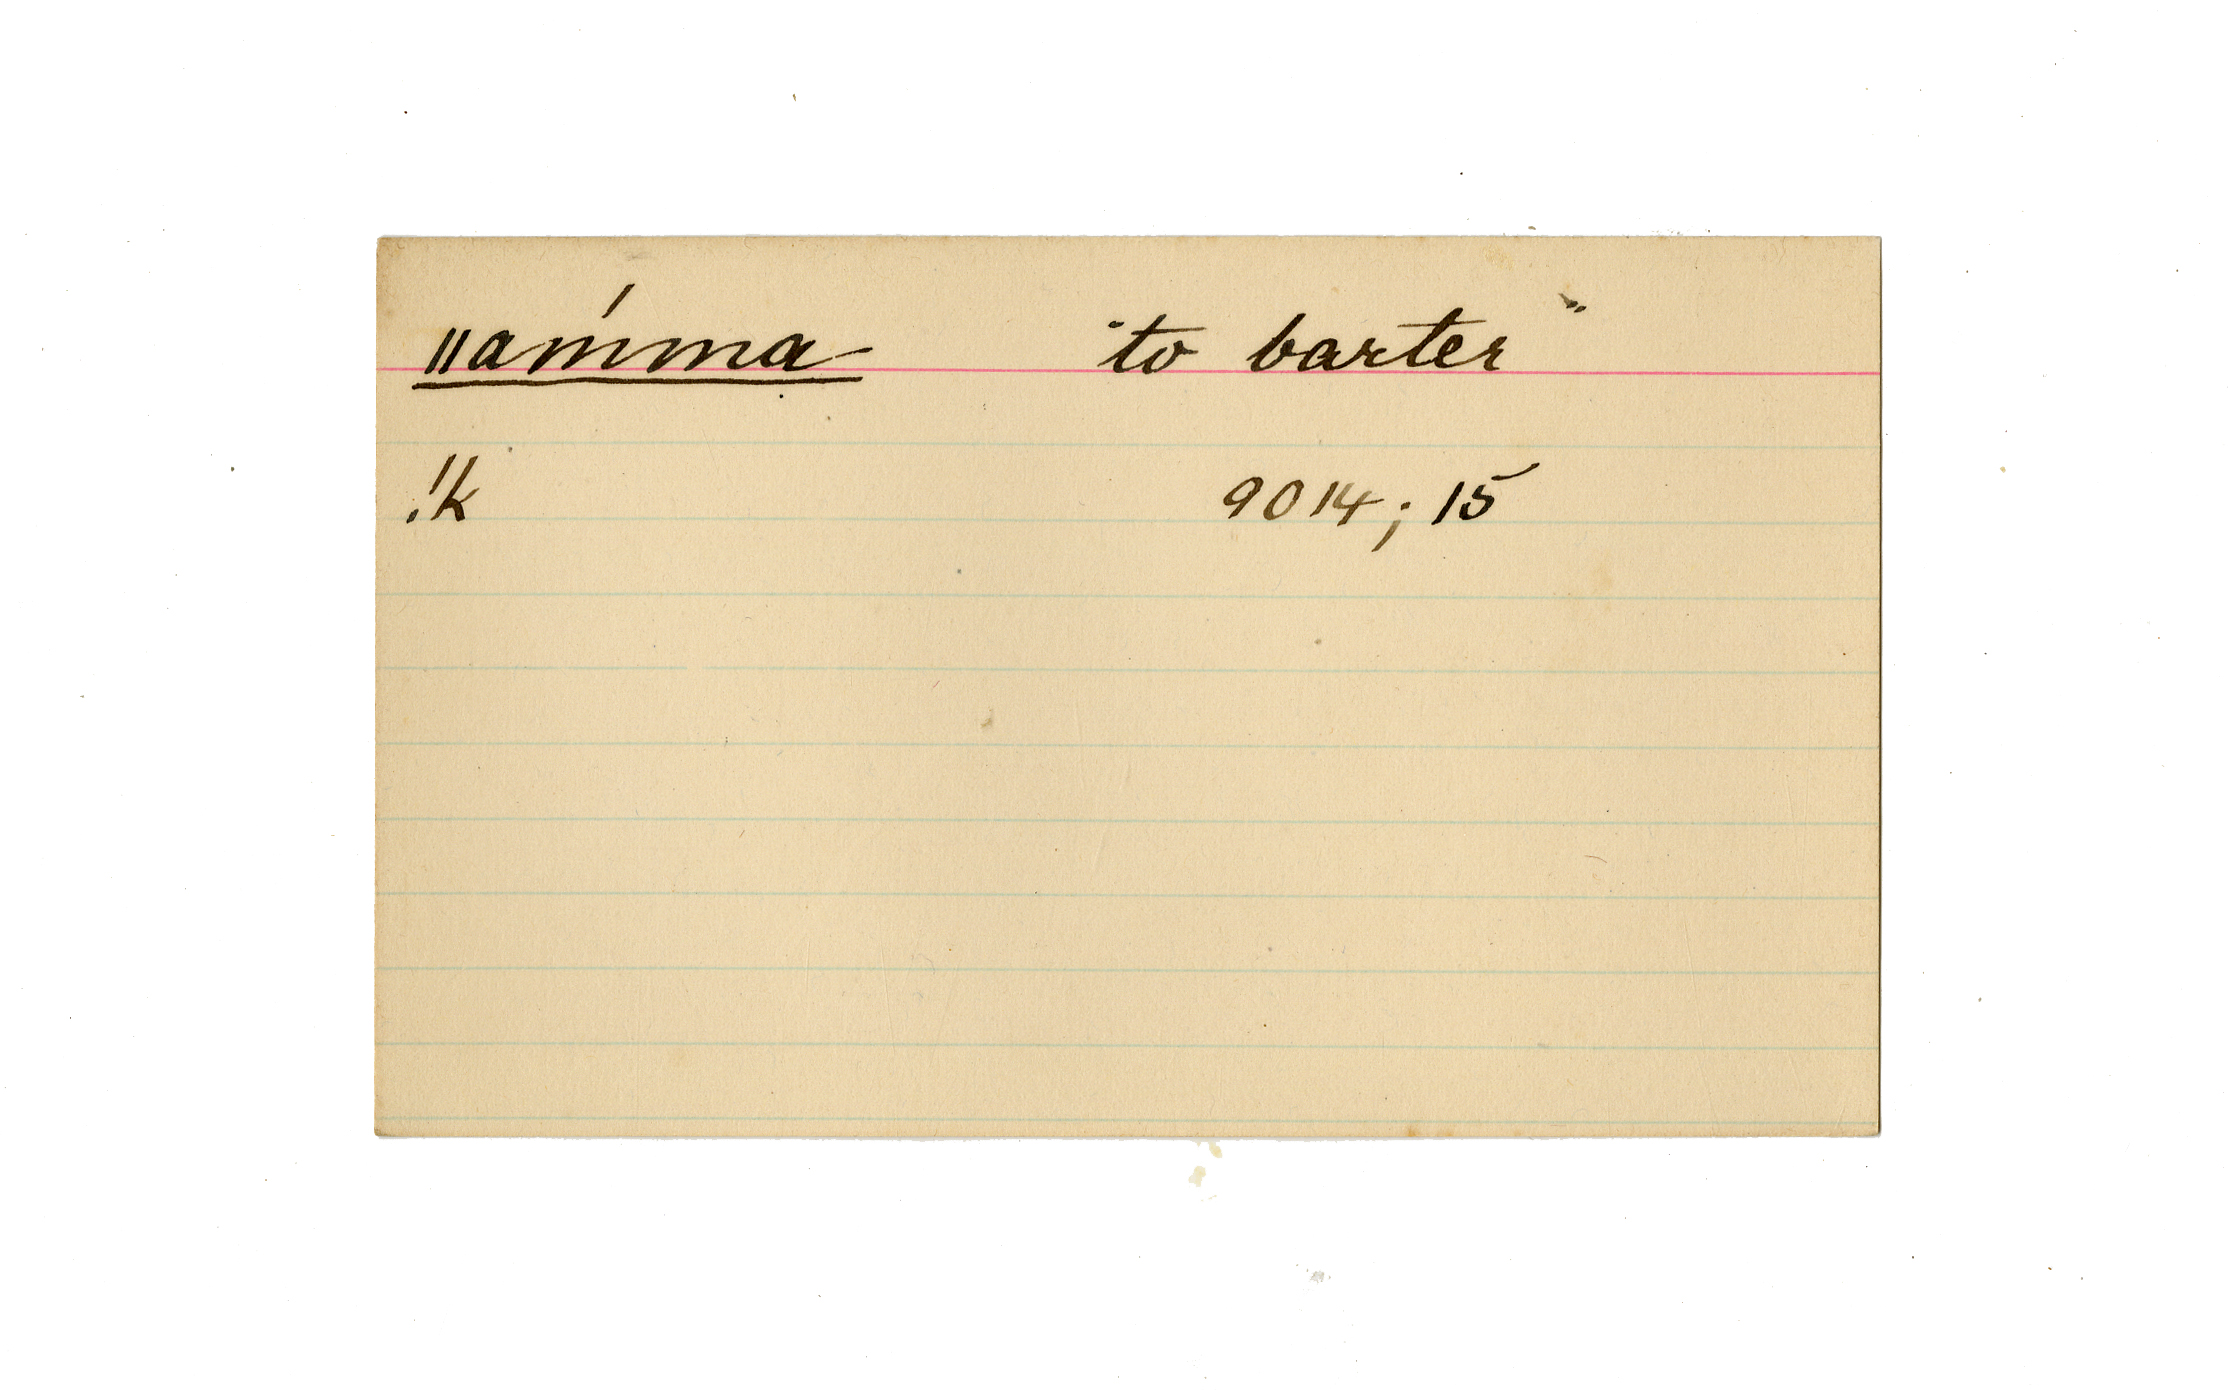 ǁámma "to barter"
!k 9014; 15